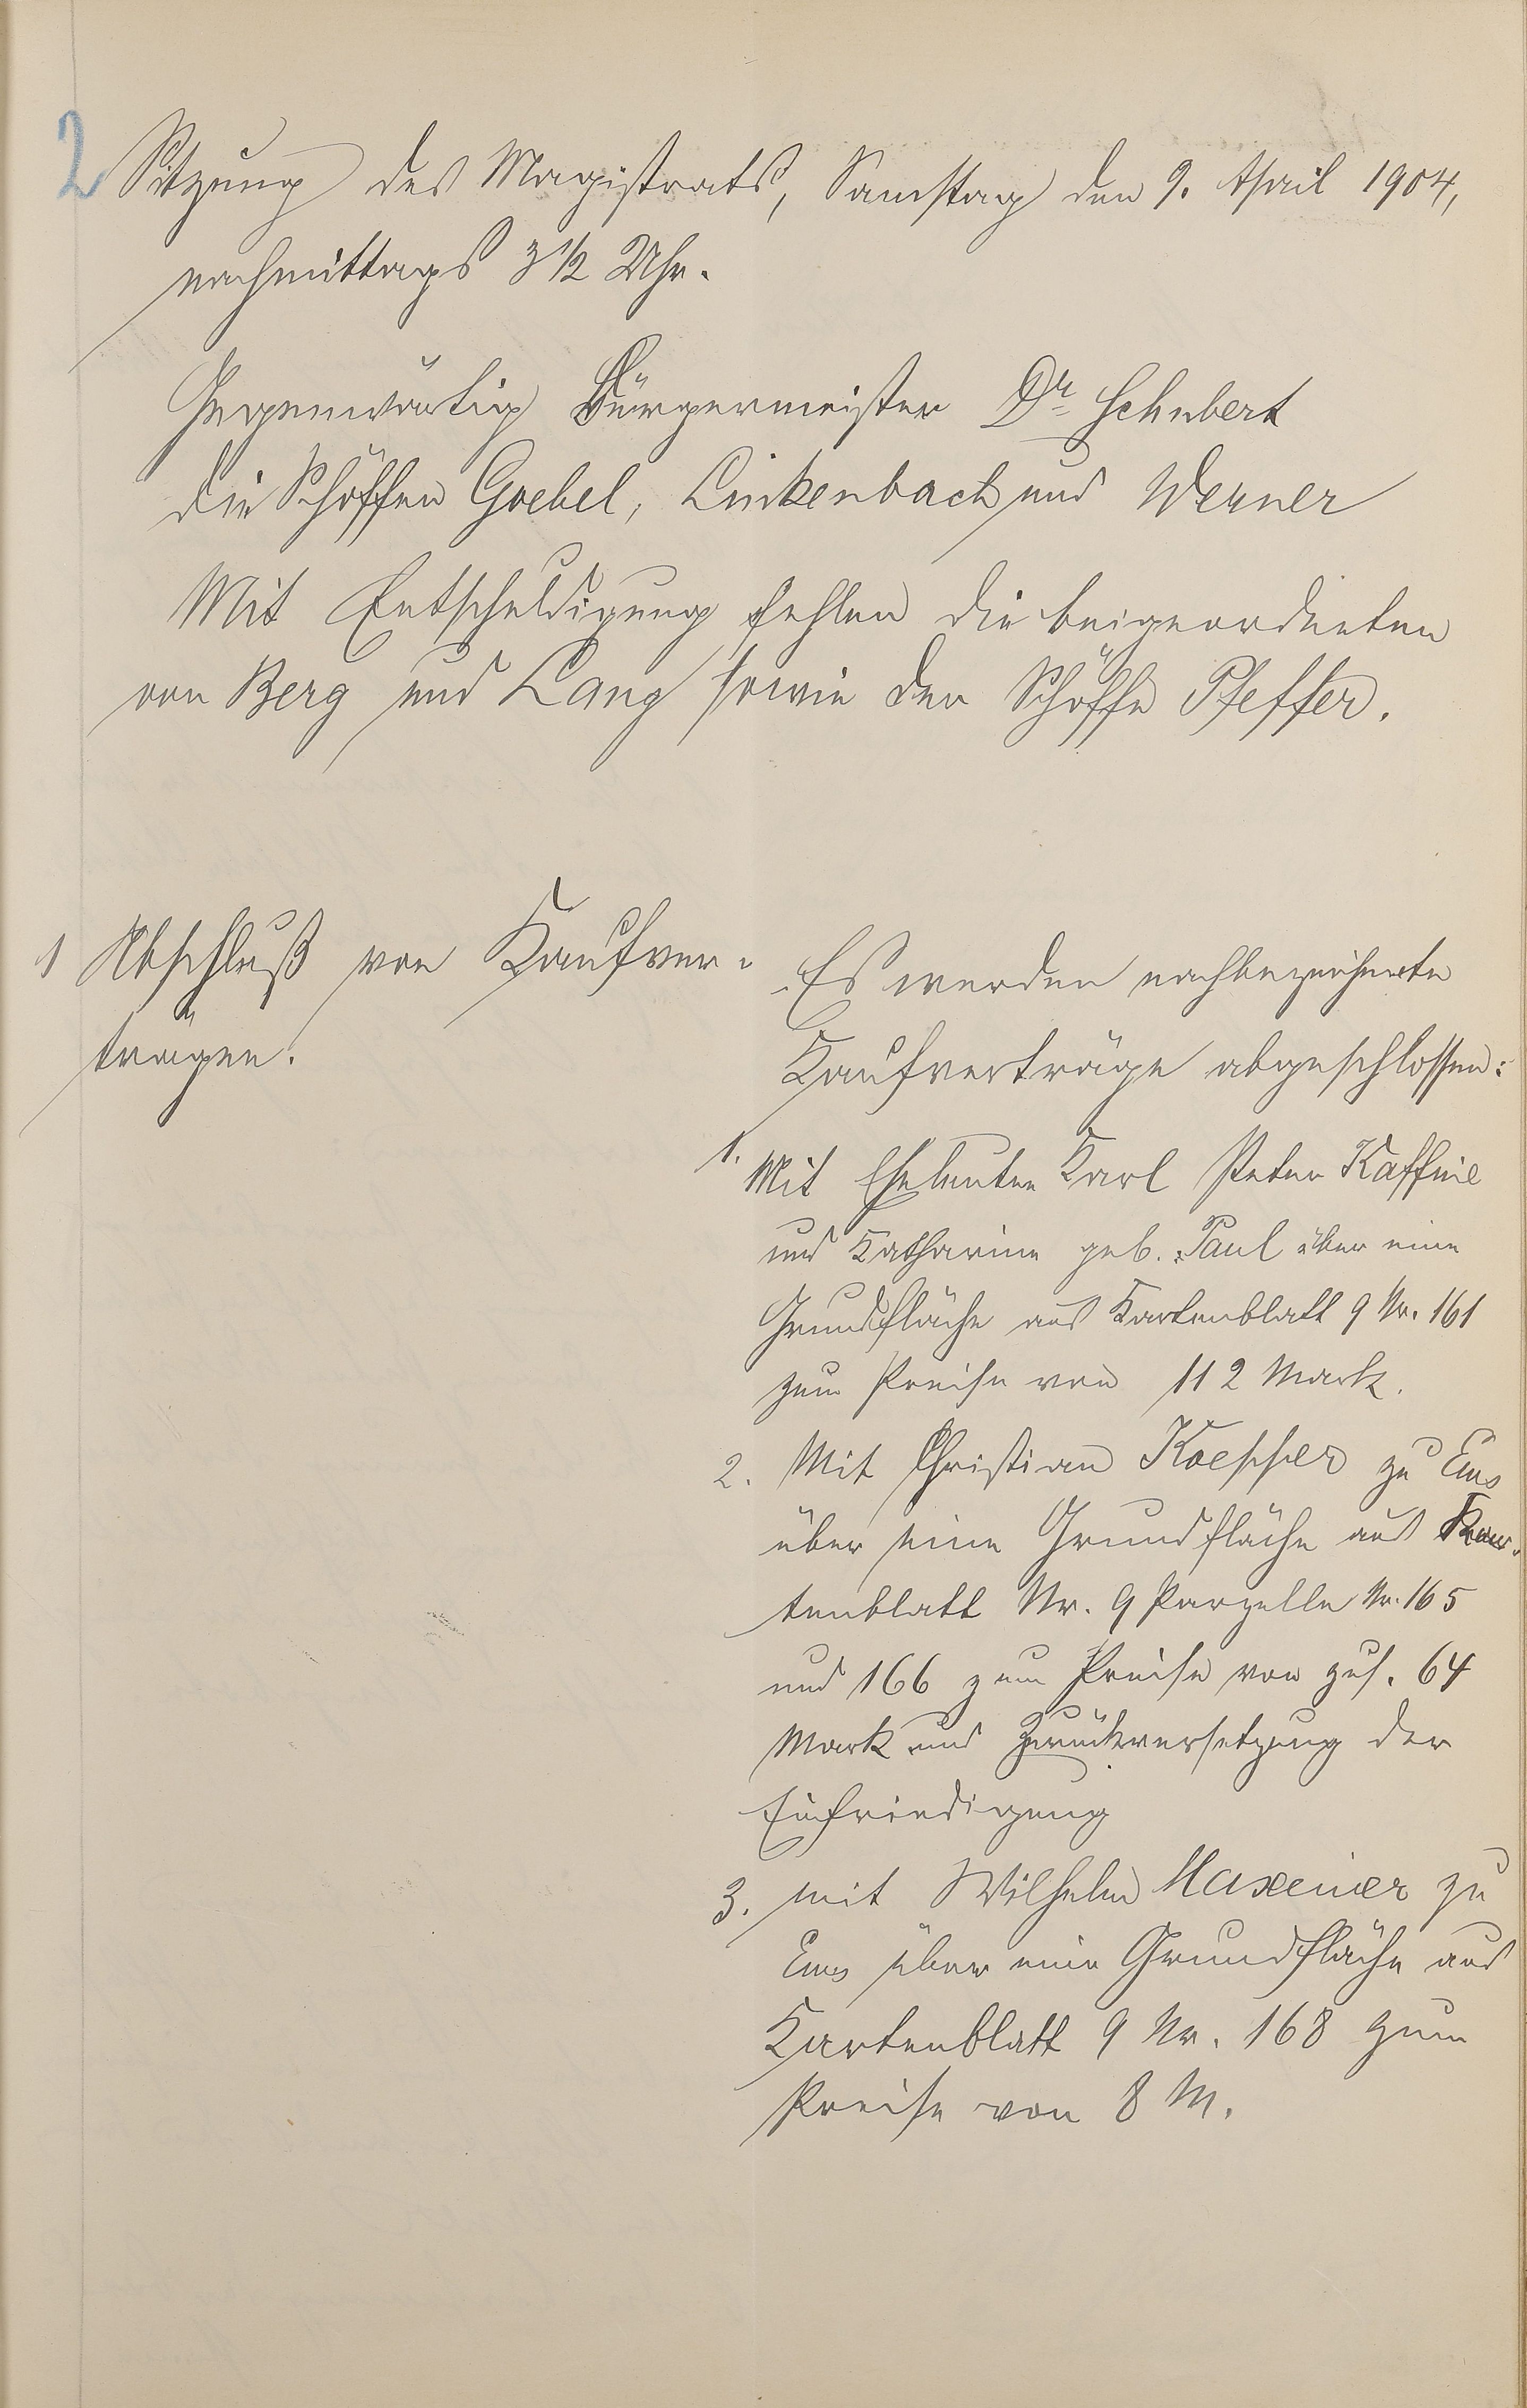 2
Sitzung des Magistrats, Samstag den 9. April 1904,
nachmittags 3 1/2 Uhr.
Gegenwärtig Bürgermeister Dr. Schubert
die Schöffen Goebel, Linkenbach und Werner
Mit Entschuldigung fehlen die beigeordneten
von Berg und Lang sowie der Schöffe Pfeffer.
1 Abschluß von Kaufver-
trägen.
Es werden nachbezeichnete
Kaufverträge abgeschlossen:
1. Mit Eheleuten Karl Peter Kaffine
und Katharine geb. Paul über eine
Grundfläche aus Kartenblatt 9 Nr. 161
zum Preise von 112 Mark.
2. Mit Christian Koepper zu Ems
über eine Grundfläche aus Kar-
tenblatt Nr. 9 Parzelle Nr. 165
und 166 zum Preise von zus. 64
Mark und Zurückversetzung der
Einfriedigung
3. mit Wilhelm Maxeiner zu
Ems über eine Grundfläche aus
Kartenblatt 9 Nr. 168 zum
Preise von 8 M.